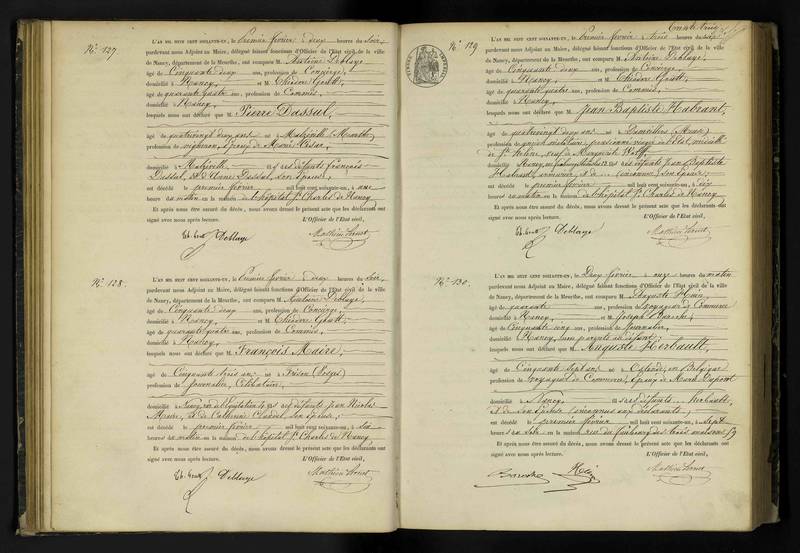 N.° 127.
L'AN MIL HUIT CENT SOIXANTE-UN, le premier février à deux heures du soir,
pardevant nous Adjoint au Maire, délégué faisant fonctions d'Officier de l'Etat civil de la ville
de Nancy, département de la Meurthe, ont comparu M. Deblaye,
âgé de Cinquante deux ans, profession de Concierge,
domicilié à Nancy, et M. Théodore
âgé de quarante quatre ans, profession de Commis,
domicilié à Nancy,
lesquels nous ont déclaré que M. Pierre Dassul,
âgé de quatrevingt deux ans né à Malzéville (Meurthe)
profession de vigneron, époux de Marie César,
domicilié à Malzéville, fils des défunts François
Dassul, et d'Anne Dassul, son épouse,
est décédé le premier février mil huit cent soixante-un, à une
heure du matin en la maison de l'hôpital St. Charles de Nancy
Et après nous être assuré du décès, nous avons dressé le présent acte que les déclarants ont
signé avec nous après lecture. L'Officier de l'Etat civil,
Deblaye
N.° 128.
L'AN MIL HUIT CENT SOIXANTE-UN, le premier février à deux heures du soir,
pardevant nous Adjoint au Maire, délégué faisant fonctions d'Officier de l'Etat civil de la ville
de Nancy, département de la Meurthe, ont comparu M. Deblaye,
âgé de Cinquante deux ans, profession de Concierge,
domicilié à Nancy, et M. Théodore
âgé de quarante quatre ans, profession de Commis,
domicilié à Nancy,
lesquels nous ont déclaré que M. François Maire,
âgé de Cinquante trois ans né à (Vosges)
profession de journalier, Célibataire,
domicilié à Nancy, fils des défunts Jean Nicolas
Maire, et de Catherine Claudel, son épouse,
est décédé le premier février mil huit cent soixante-un, à six
heures du matin en la maison de l'hôpital St. Charles de Nancy,
Et après nous être assuré du décès, nous avons dressé le présent acte que les déclarants ont
signé avec nous après lecture. L'Officier de l'Etat civil,
Deblaye
N.° 129.
L'AN MIL HUIT CENT SOIXANTE-UN, le premier février à trois heures du soir,
pardevant nous Adjoint au Maire, délégué faisant fonctions d'Officier de l'Etat civil de la ville
de Nancy, département de la Meurthe, ont comparu M. Deblaye,
âgé de Cinquante deux ans, profession de Concierge,
domicilié à Nancy, et M. Théodore
âgé de quarante quatre ans, profession de Commis,
domicilié à Nancy,
lesquels nous ont déclaré que M. Jean Baptiste Habrant,
âgé de quatrevingt deux ans né à Damvillers (Meuse)
profession de ancien militaire, pensionné de l'Etat, médaillé
de Ste Hélène, veuf de Marguerite
domicilié à Nancy, fils des défunts Jean Baptiste
Habrant, et de inconnue, son épouse,
est décédé le premier février mil huit cent soixante-un, à dix
heures du matin en la maison de l'hôpital St. Charles de Nancy
Et après nous être assuré du décès, nous avons dressé le présent acte que les déclarants ont
signé avec nous après lecture. L'Officier de l'Etat civil,
Deblaye
N.° 130.
L'AN MIL HUIT CENT SOIXANTE-UN, le deux février à onze heures du matin
pardevant nous Adjoint au Maire, délégué faisant fonctions d'Officier de l'Etat civil de la ville
de Nancy, département de la Meurthe, ont comparu M. Auguste
âgé de quarante ans, profession de voyageur de Commerce
domicilié à Nancy, et M. Joseph
âgé de Cinquante cinq ans, profession de journalier,
domicilié à Nancy, non parents au défunt;
lesquels nous ont déclaré que M. Auguste Herbault,
âgé de Cinquante sept ans né à Ostende, en Belgique
profession de Voyageur de Commerce, époux de Marie Dupont
domicilié à Nancy, fils des défunts Herbault,
et de son épouse, inconnus aux déclarants,
est décédé le premier février mil huit cent soixante-un, à sept
heures du soir en la maison rue du faubourg des trois maisons 59
Et après nous être assuré du décès, nous avons dressé le présent acte que les déclarants ont
signé avec nous après lecture. L'Officier de l'Etat civil,